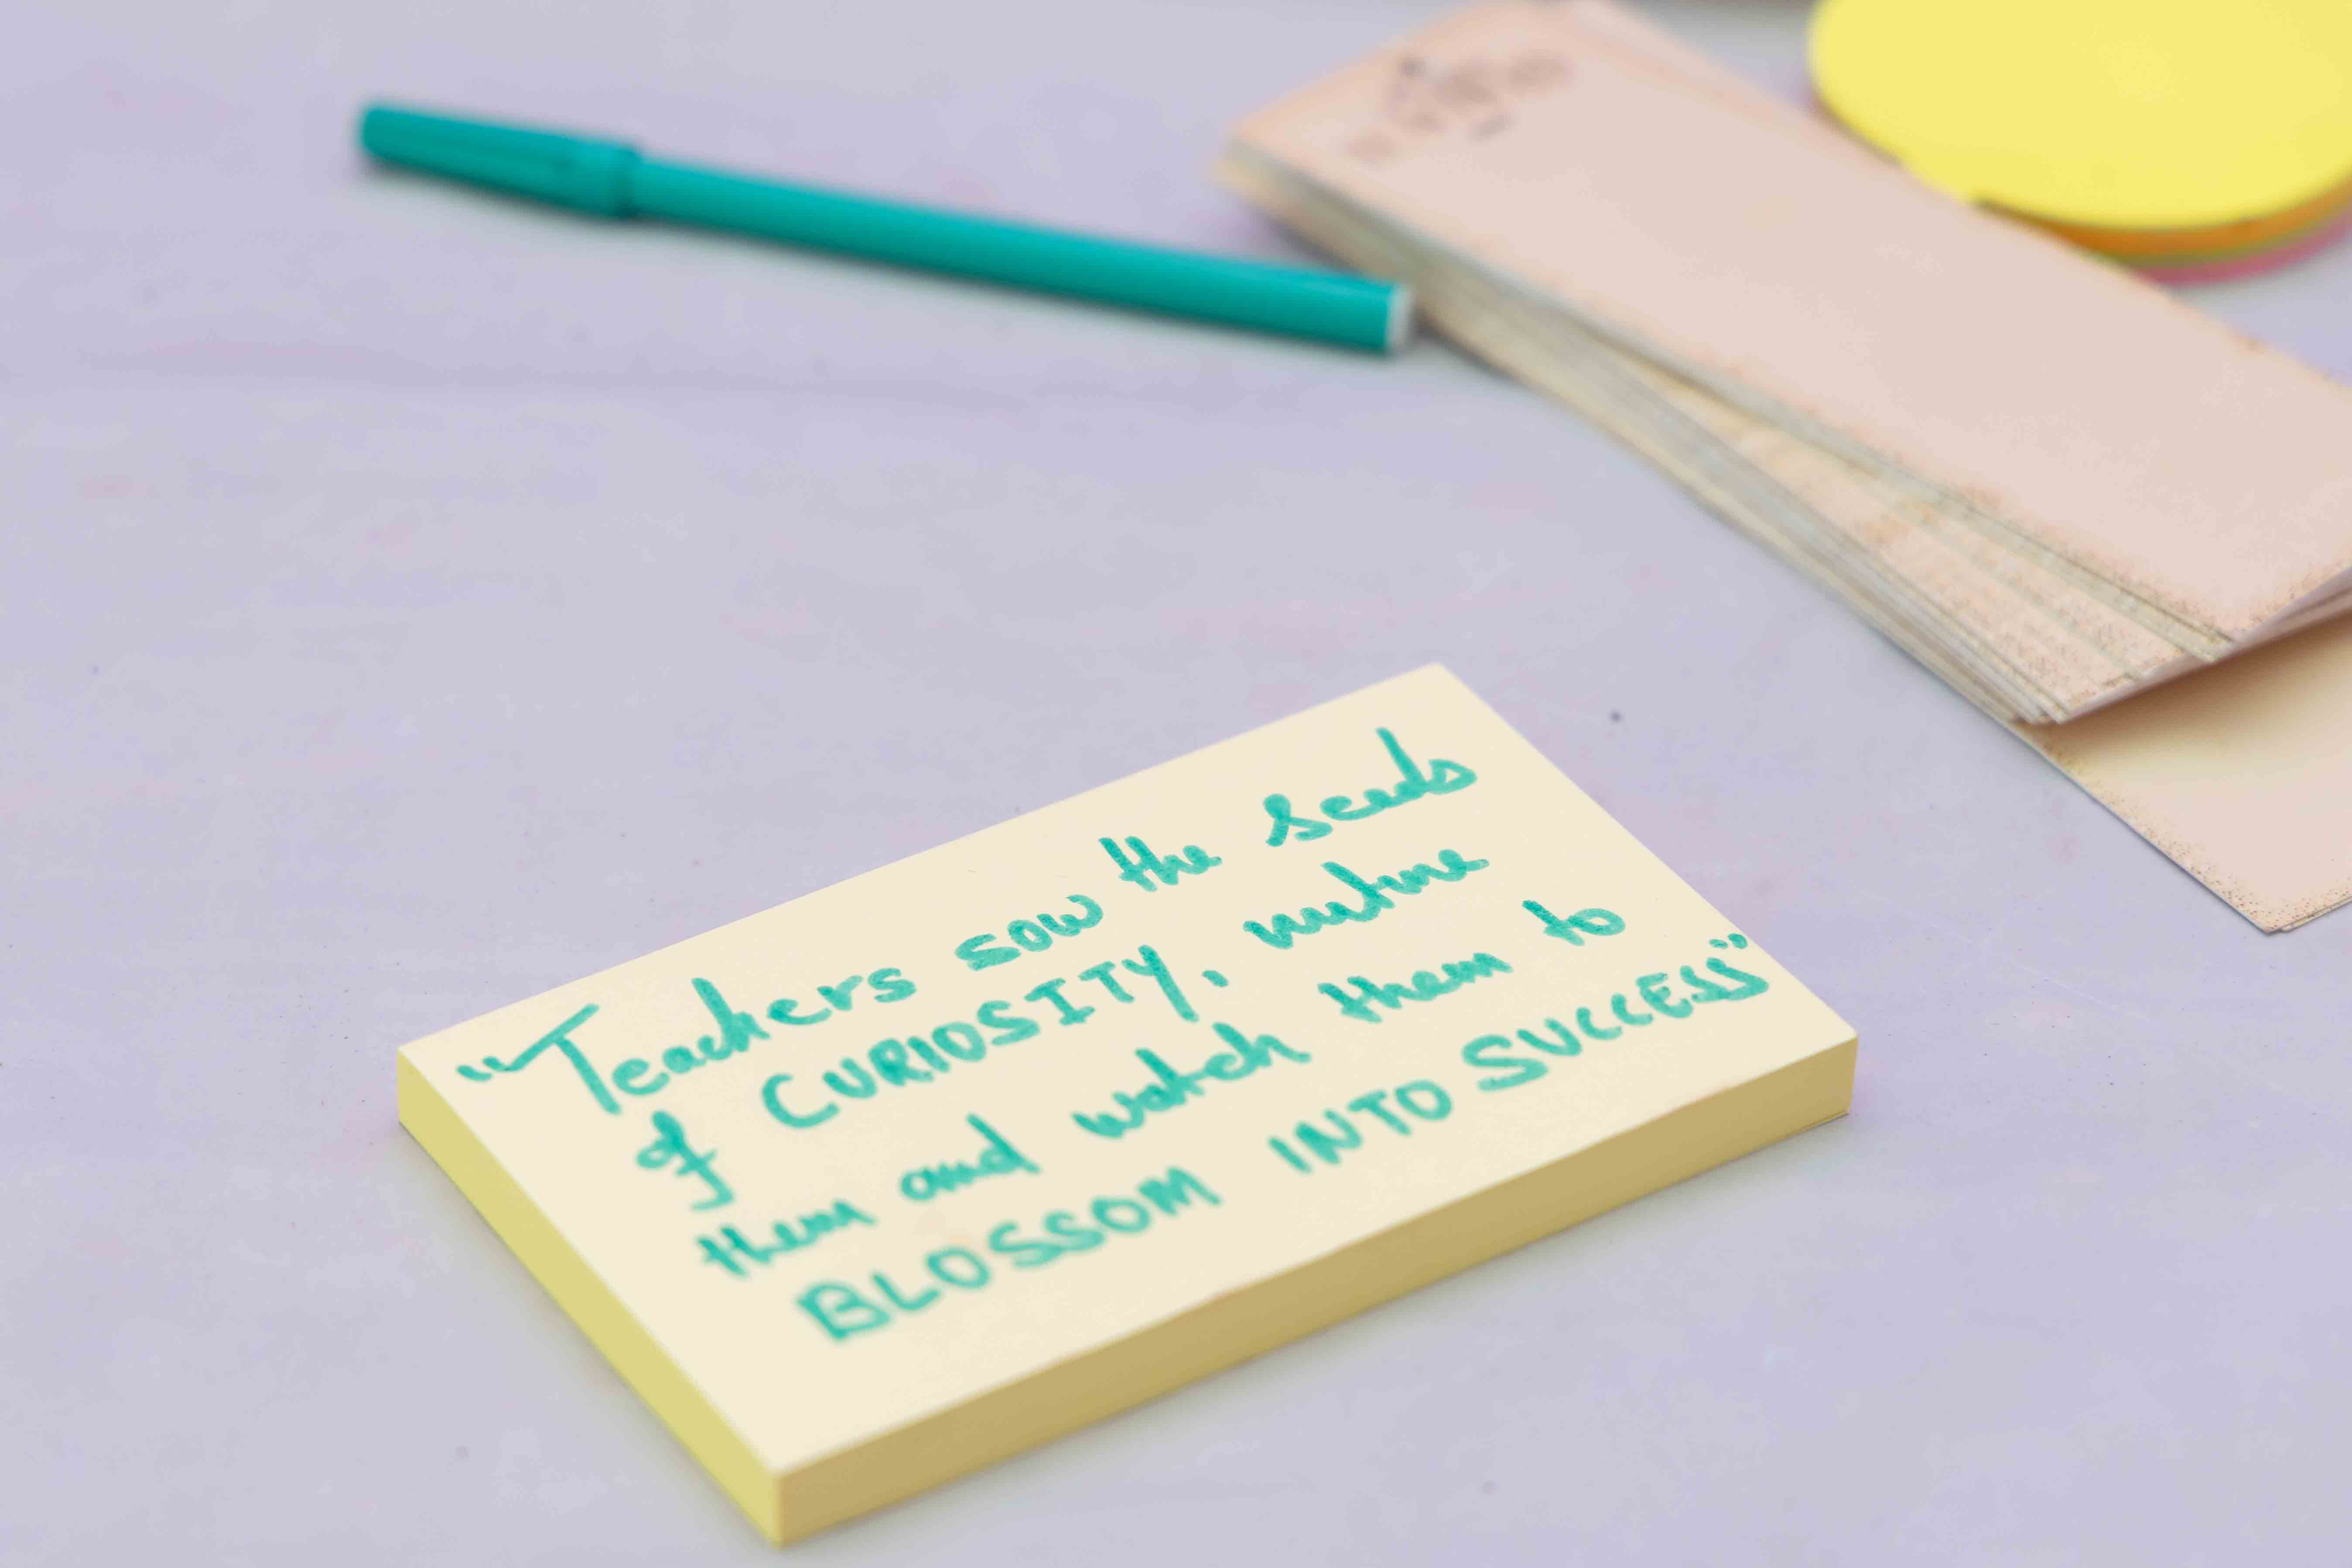 "Teachers sow the seeds
of CURIOSITY, nuture
them and watch them to
BLOSSOM INTO SUCCESS"